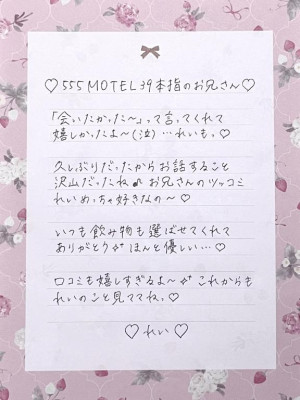 ♡555MOTEL39本指のお兄さん♡
「会いたかった〜」って言ってくれて
嬉しかったよ〜(泣)…れいも。♡
久しぶりだったからお話すること
沢山だったね♪お兄さんのツッコミ
れいめっちゃ好きなの〜♡
いつも飲み物も選ばせてくれて
ありがとう✨ほんと優しい…♡
口コミも嬉しすぎるよ〜✨これからも
れいのこと見ててね。♡
♡れい♡